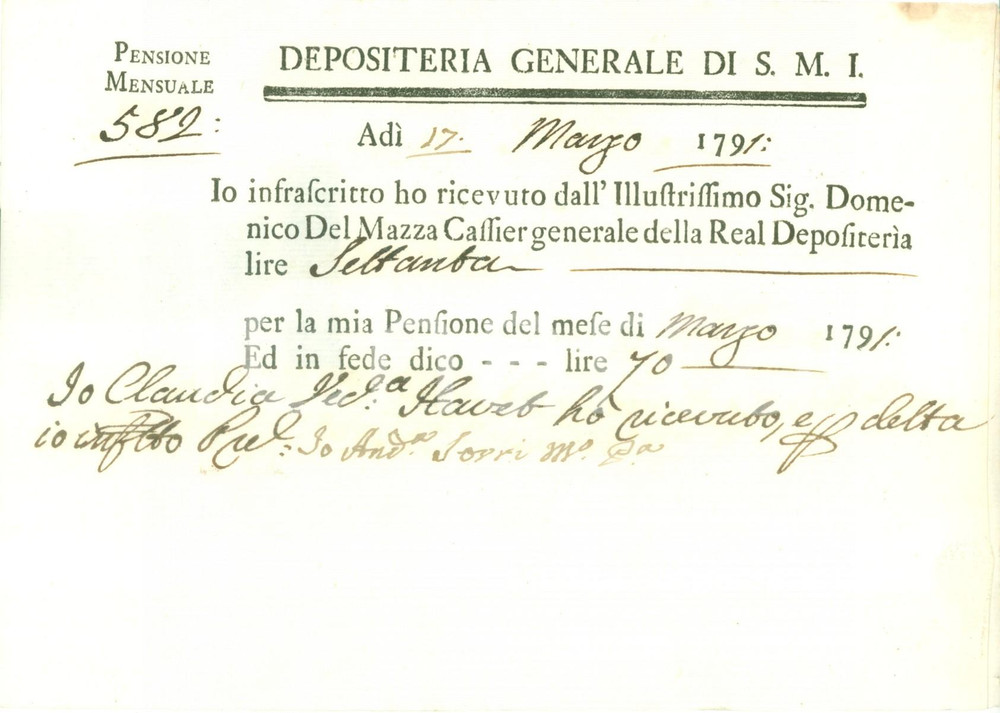 PENSIONE
MENSUALE
582:
DEPOSITERIA GENERALE DI S. M. I.
Adì 17. Marzo 1791:
Io infraſcritto ho ricevuto dall' Illuſtriſſimo Sig. Dome-
nico Del Mazza Caſſier generale della Real Depoſiterìa
lire Settanta
per la mia Penſione del meſe di Marzo 1791:
Ed in fede dico - - - lire 70
Io Claudia Ved.ª Havet hò ricevuto, e p detta
io Io And.ª Sorri Mº. Pª